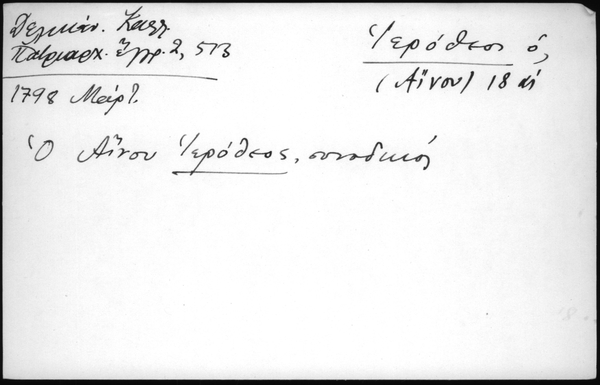 Δελικάν. Καλλ.
Πατριαρχ. Ἔγγρ. 2, 573
Ἱερόθεος ὁ,
(Αἴνου) 18 αἰ
1798 Μάρτ.
Ὁ Αἴνου Ἱερόθεος, συνοδικός